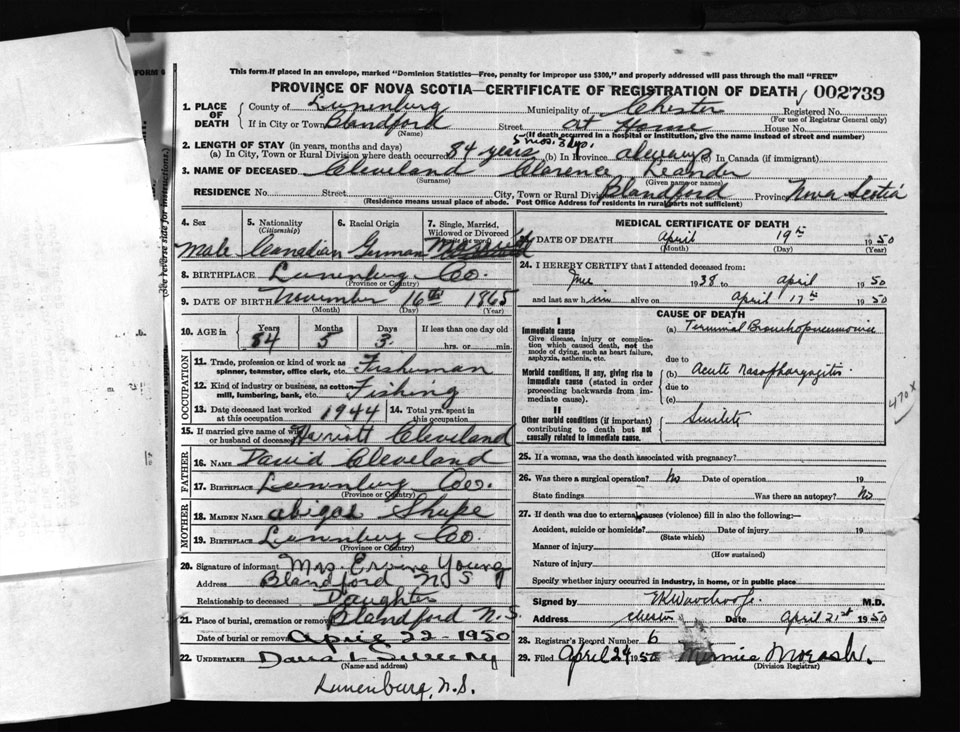 FORM 5
(See reverse side for instructions.)
This form if placed in an envelope, marked "Dominion Statistics—Free, penalty for improper use $300," and properly addressed will pass through the mail "FREE"
PROVINCE OF NOVA SCOTIA—CERTIFICATE OF REGISTRATION OF DEATH 002739
1. PLACE OF DEATH County of Lunenburg Municipality of Chester Registered No.
(For use of Registrar General only)
If in City or Town Blandford Street at Home House No.
(Name) (If death occurred in a hospital or institution, give the name instead of street and number)
2. LENGTH OF STAY (in years, months and days) 5 mos. 3 dys.
(a) In City, Town or Rural Division where death occurred 84 years (b) In Province always (c) In Canada (if immigrant)
3. NAME OF DECEASED Cleveland Clarence Leander
(Surname) (Given name or names)
RESIDENCE No. Street City, Town or Rural Division Blandford Province Nova Scotia
(Residence means usual place of abode. Post Office Address for residents in rural parts not sufficient)
4. Sex 5. Nationality (Citizenship) 6. Racial Origin 7. Single, Married, Widowed or Divorced (write the word)
Male Canadian German Married
8. BIRTHPLACE Lunenburg Co.
(Province or Country)
9. DATE OF BIRTH November 16th 1865
(Month) (Day) (Year)
10. AGE in Years Months Days If less than one day old
84 5 3 hrs. or min.
OCCUPATION
11. Trade, profession or kind of work as spinner, teamster, office clerk, etc. Fisherman
12. Kind of industry or business, as cotton mill, lumbering, bank, etc. Fishing
13. Date deceased last worked at this occupation 1944 14. Total yrs. spent in this occupation
15. If married give name of wife or husband of deceased Harriott Cleveland
FATHER
16. NAME David Cleveland
17. BIRTHPLACE Lunenburg Co.
(Province or Country)
MOTHER
18. MAIDEN NAME abigal Shupe
19. BIRTHPLACE Lunenburg Co.
(Province or Country)
20. Signature of informant Mrs. Ervine Young
Address Blandford N S
Relationship to deceased Daughter
21. Place of burial, cremation or removal Blandford N.S.
Date of burial or removal April 22 - 1950
22. UNDERTAKER Sweeny
(Name and address)
Lunenburg, N.S.
MEDICAL CERTIFICATE OF DEATH
23. DATE OF DEATH April 19th 1950
(Month) (Day) (Year)
24. I HEREBY CERTIFY that I attended deceased from:
1938 to April 1950
and last saw him alive on April 17th 1950
CAUSE OF DEATH
I
Immediate cause
Give disease, injury or complication which caused death, not the mode of dying, such as heart failure, asphyxia, asthenia, etc.
(a) Terminal Bronchopneumonia
due to
Morbid conditions, if any, giving rise to immediate cause (stated in order proceeding backwards from immediate cause).
(b) Acute Nasopharyngitis
due to
(c)
470 x
II
Other morbid conditions (if important) contributing to death but not causally related to immediate cause.
Senility
25. If a woman, was the death associated with pregnancy?
26. Was there a surgical operation? No Date of operation 19
State findings Was there an autopsy? No
27. If death was due to external causes (violence) fill in also the following:—
Accident, suicide or homicide? Date of injury 19
(State which)
Manner of injury
(How sustained)
Nature of injury
Specify whether injury occurred in industry, in home, or in public place
Signed by M.D.
Address Chester Date April 21st 1950
28. Registrar's Record Number 6
29. Filed April 24 1950 Minnie Morash.
(Division Registrar)